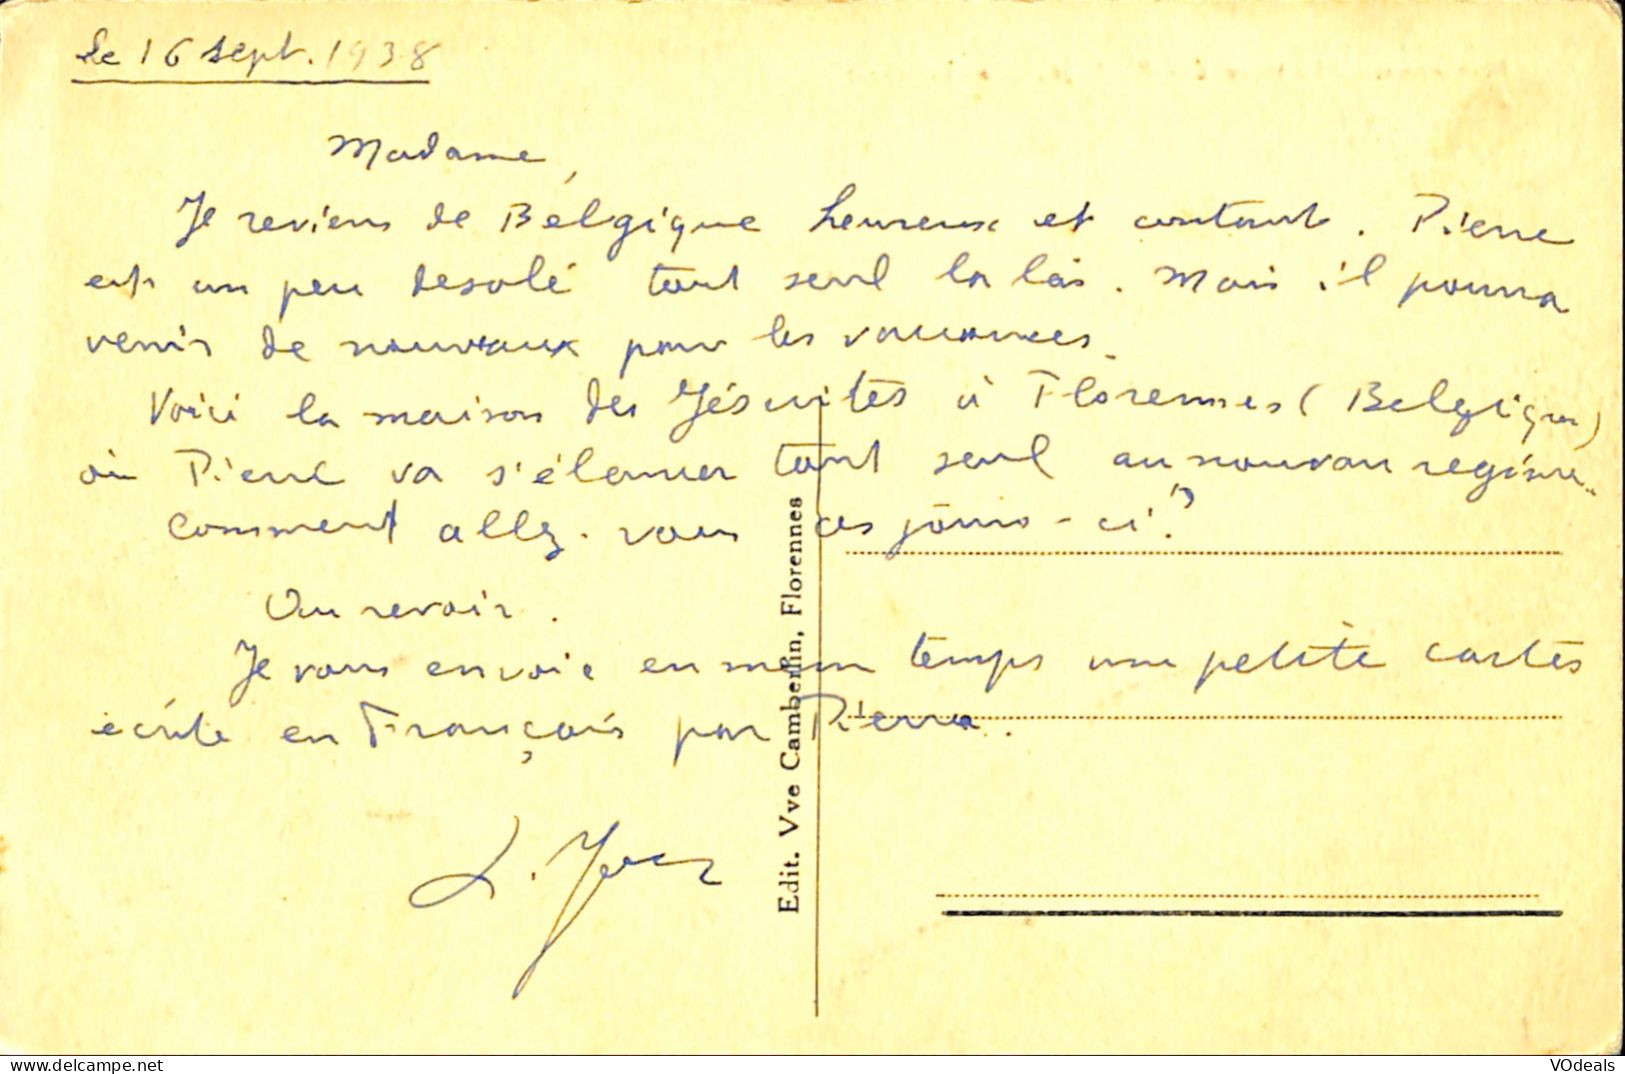 Le 16 sept. 1938
Madame,
Je reviens de Bélgique heureux et contant. Pierre
est un peu desolé tout seul la bàs. Mais il pourra
venir de nouveaux pour les vacances.
Voici la maison des Jésuites à Florennes (Belgique)
où Pierre va s'élancer tout seul au nouveau regime.
Comment allez-vous ces jours-ci?
Au revoir.
Je vous envoie en mem temps une petite cartes
écrite en Français par Pierre.
Edit. Vve Camberlin, Florennes
VOdeals